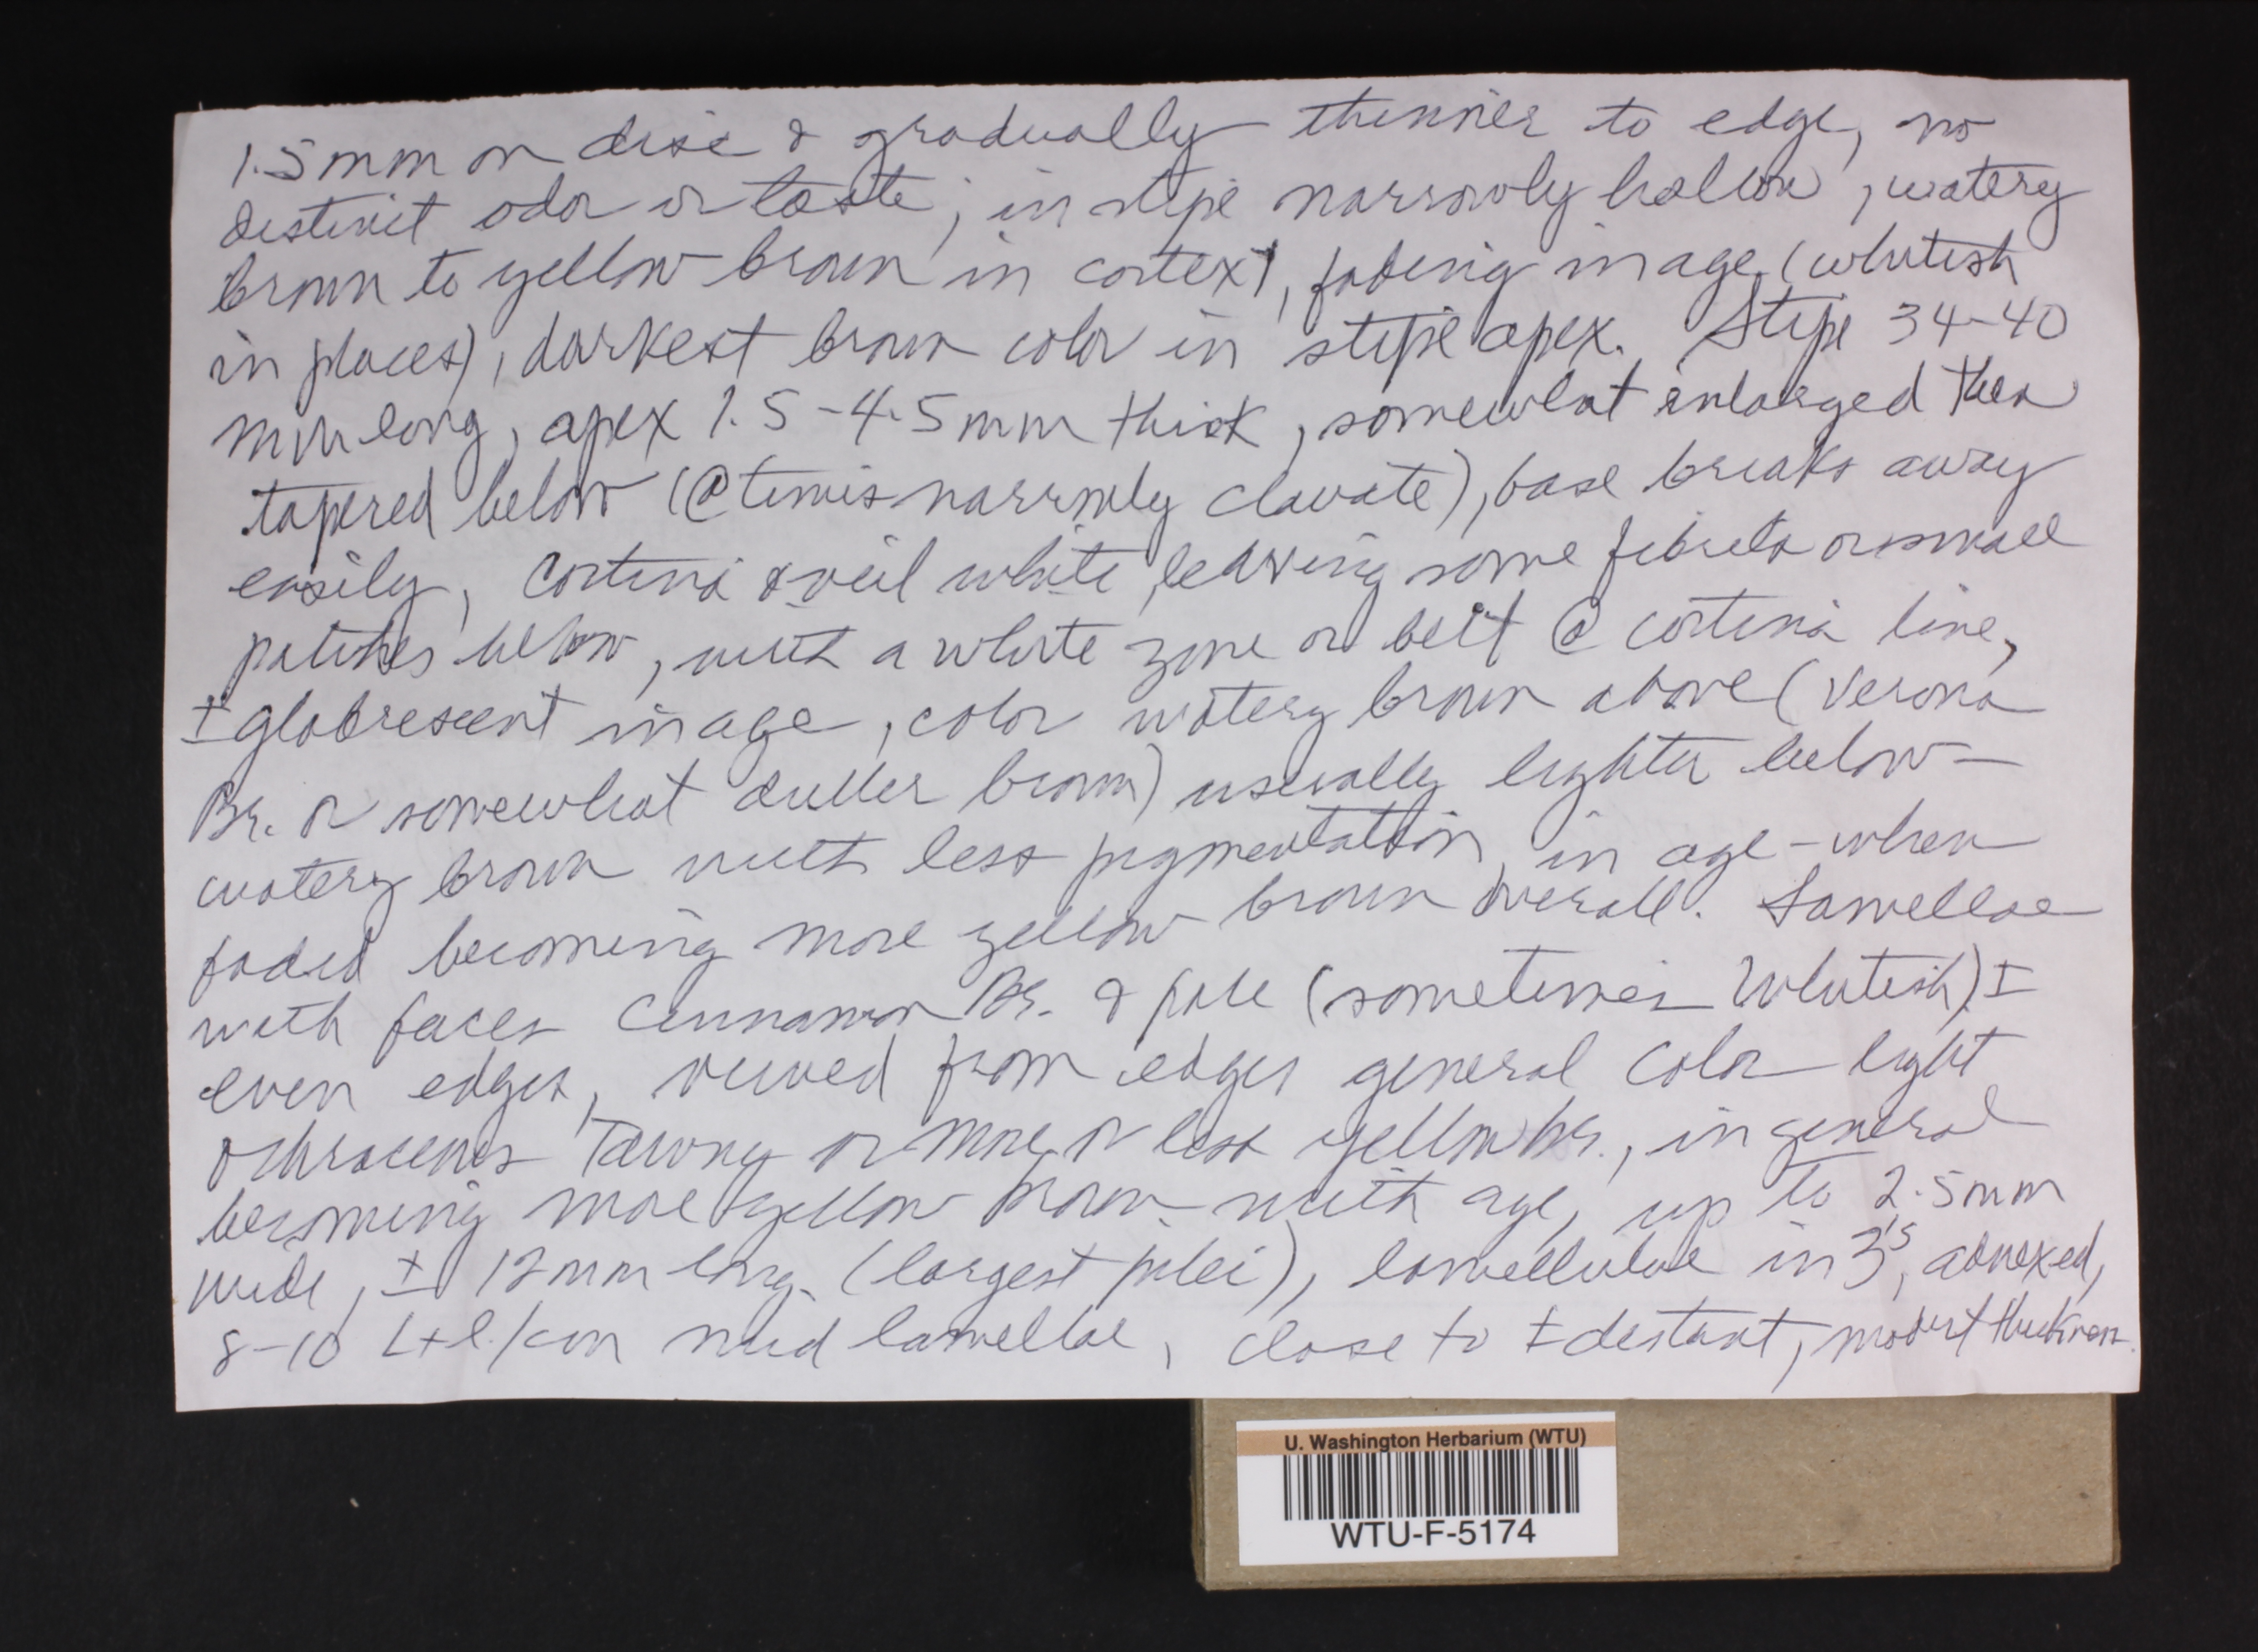 1.5 mm on disc & gradually thinner to edge, no
distinct odor or taste; in stipe narrowly hollow, watery
brown to yellow-brown in cortex, fading in age (whitish
in places), darkest brown color in stipe apex. Stipe 34-40
mm long, apex 1.5-4.5 mm thick, somewhat enlarged then
tapered below (@ times narrowly clavate), base breaks away
easily, cortina & veil white, leaving some fibrils or small
patches below, with a white zone or belt @ cortina line,
± glabrescent in age, color watery brown above (Verona
Br. or somewhat duller brown) usually lighter below -
watery brown with less pigmentation, in age - when
faded becoming more yellow brown overall. Lamellae
with faces Cinnamon Br. & pale (sometimes whitish) ±
even edges, viewed from edges general color light
ochraceous Tawny or more or less yellow br., in general
becoming more yellow brown with age, up to 2.5 mm
wide, ± 12 mm long (largest pilei), lamellulae in 3's, adnexed,
8-10 L+l./cm mid lamellae, close to ± distant, modest thickness.
U. Washington Herbarium (WTU)
WTU-F-5174